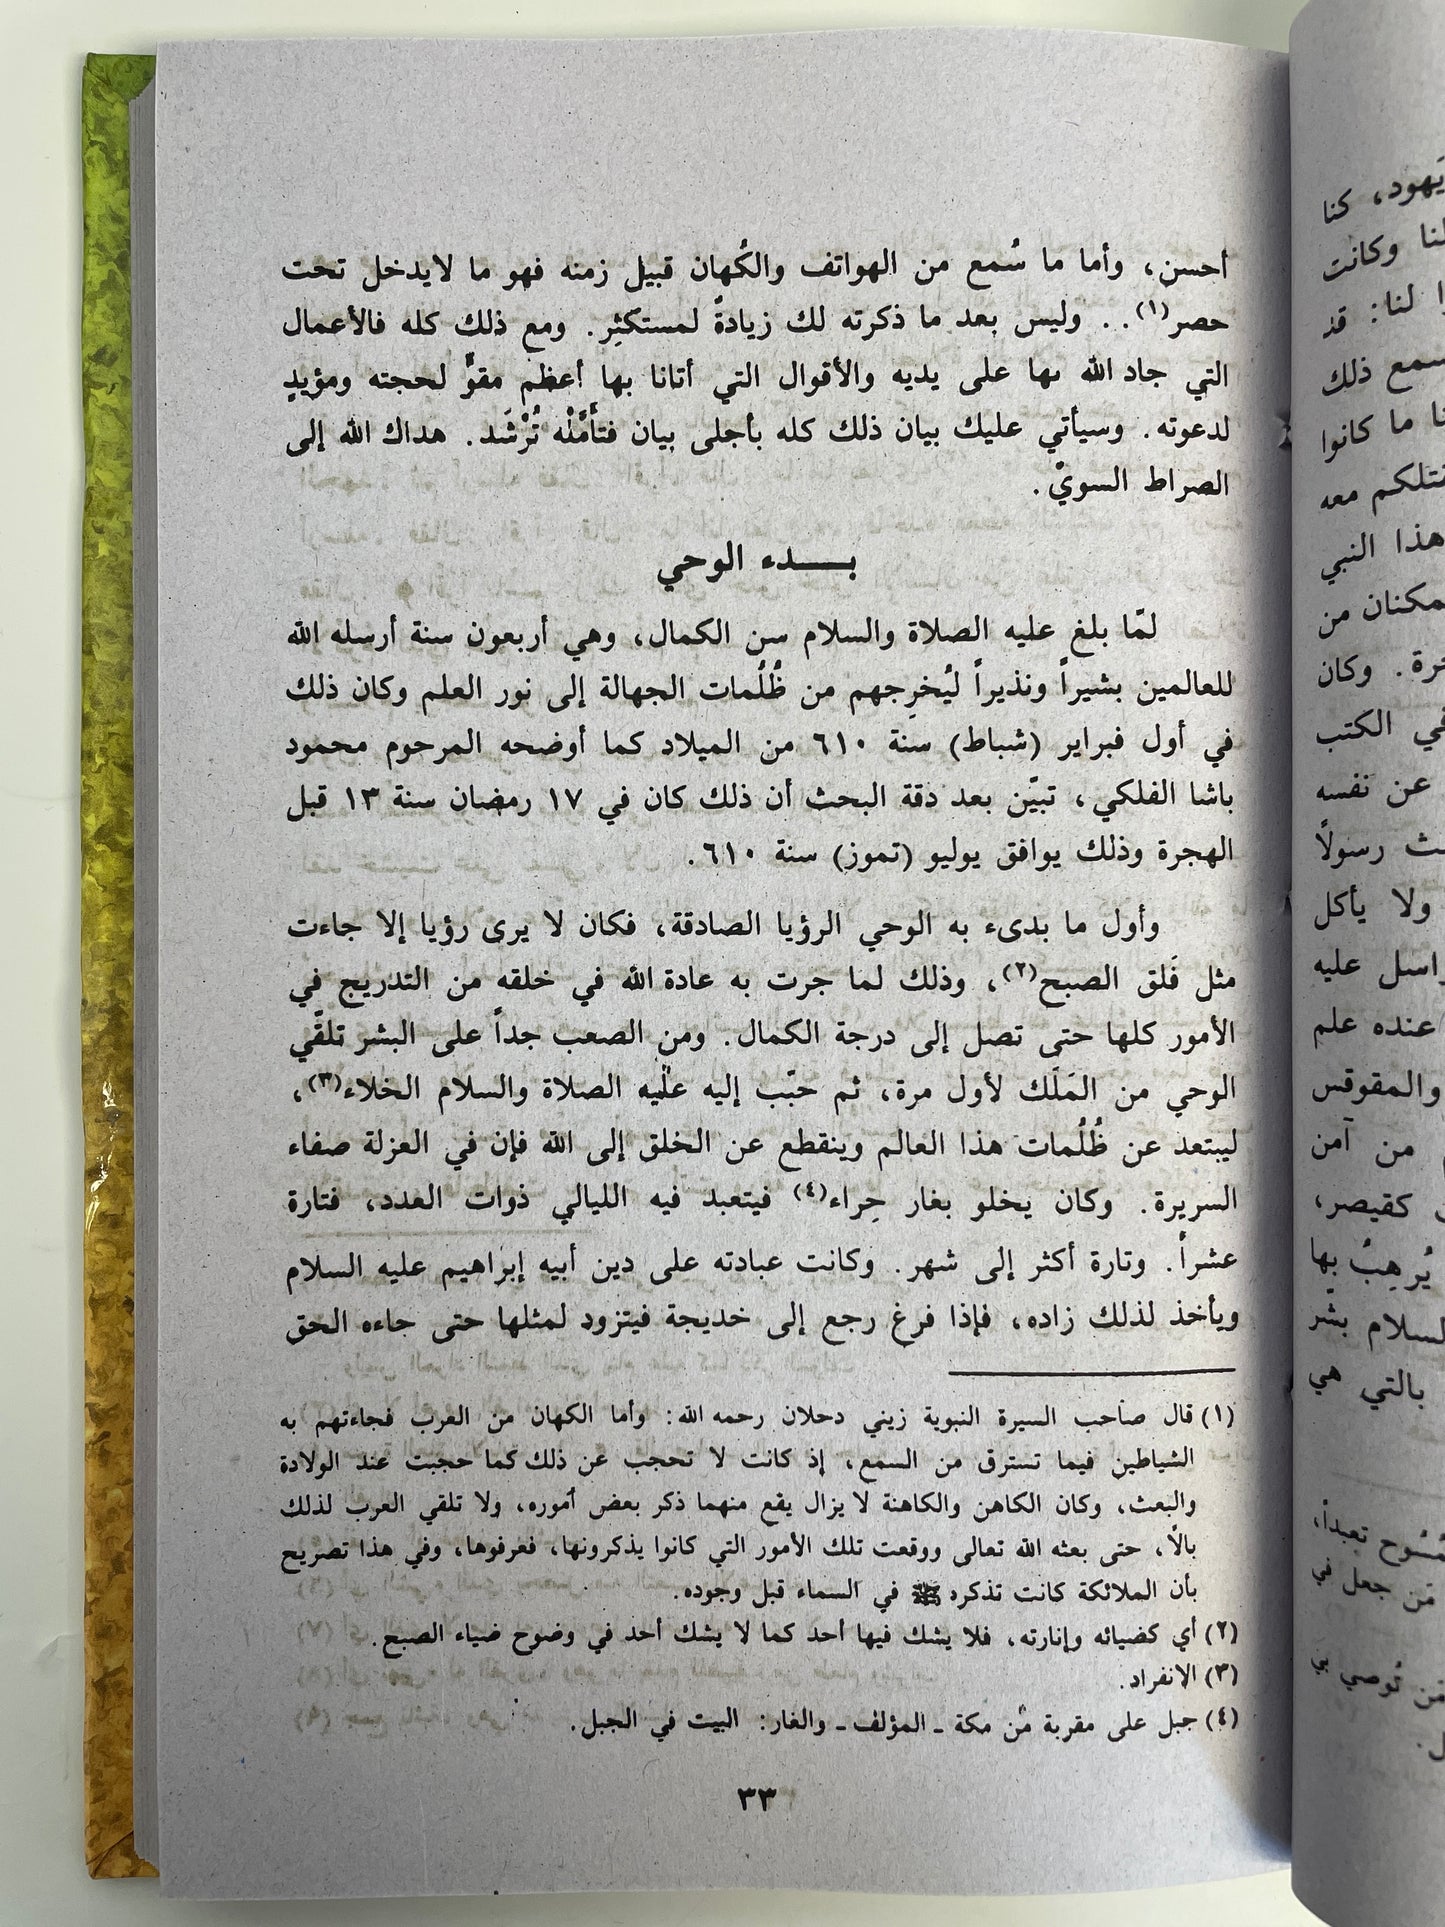 أحسن، وأما ما سُمع من الهواتف والكُهان قبيل زمنه فهو ما لايدخل تحت
حصر(١).. وليس بعد ما ذكرته لك زيادةً لمستكثِر. ومع ذلك كله فالأعمال
التي جاد الله بها على يديه والأقوال التي أتانا بها أعظم مقوٍّ لحجته ومؤيدٍ
لدعوته. وسيأتي عليك بيان ذلك كله بأجلى بيان فتأَمَّلْه تُرْشَد. هداك الله إلى
الصراط السويّ.
بـــدء الوحي
لمّا بلغ عليه الصلاة والسلام سن الكمال، وهي أربعون سنة أرسله الله
للعالمين بشيراً ونذيراً ليُخرِجهم من ظُلُمات الجهالة إلى نور العلم وكان ذلك
في أول فبراير (شباط) سنة ٦١٠ من الميلاد كما أوضحه المرحوم محمود
باشا الفلكي، تبيّن بعد دقة البحث أن ذلك كان في ١٧ رمضان سنة ١٣ قبل
الهجرة وذلك يوافق يوليو (تموز) سنة ٦١٠.
وأول ما بدىء به الوحي الرؤيا الصادقة، فكان لا يرى رؤيا إلا جاءت
مثل فَلق الصبح(٢)، وذلك لما جرت به عادة الله في خلقه من التدريج في
الأمور كلها حتى تصل إلى درجة الكمال. ومن الصعب جداً على البشر تلقّي
الوحي من المَلَك لأول مرة، ثم حبّب إليه عليه الصلاة والسلام الخلاء(٣)،
ليبتعد عن ظُلُمات هذا العالم وينقطع عن الخلق إلى الله فإن في العزلة صفاء
السريرة. وكان يخلو بغار حِراء(٤) فيتعبد فيه الليالي ذوات العدد، فتارة
عشراً. وتارة أكثر إلى شهر. وكانت عبادته على دين أبيه إبراهيم عليه السلام
ويأخذ لذلك زاده، فإذا فرغ رجع إلى خديجة فيتزود لمثلها حتى جاءه الحق
(١) قال صاحب السيرة النبوية زيني دحلان رحمه الله: وأما الكهان من العرب فجاءتهم به
الشياطين فيما تسترق من السمع، إذ كانت لا تحجب عن ذلك كما حجبت عند الولادة
والبعث، وكان الكاهن والكاهنة لا يزال يقع منهما ذكر بعض أموره، ولا تلقي العرب لذلك
بالاً، حتى بعثه الله تعالى ووقعت تلك الأمور التي كانوا يذكرونها، فعرفوها، وفي هذا تصريح
بأن الملائكة كانت تذكره ﷺ في السماء قبل وجوده.
(٢) أي كضيائه وإنارته، فلا يشك فيها أحد كما لا يشك أحد في وضوح ضياء الصبح.
(٣) الانفراد.
(٤) جبل على مقربة من مكة ـ المؤلف ـ والغار: البيت في الجبل.
٣٣
يهود، كنا
وكانت
لنا: قد
ذلك
ما كانوا
معه
هذا النبي
من
وكان
الكتب
عن نفسه
رسولاً
ولا يأكل
عليه
عنده علم
والمقوقس
من آمن
كقيصر،
يُرهِبُ بها
بشّر
بالتي هي
تعبداً،
جعل في